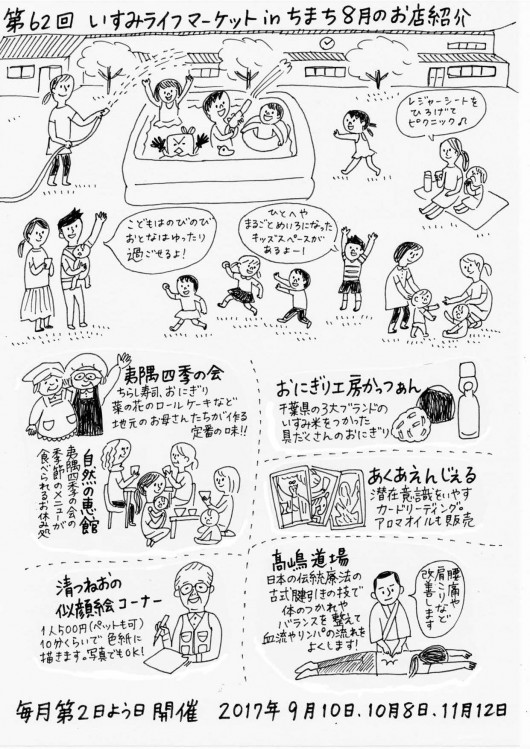 第62回 いすみライフマーケット in ちまち 8月のお店紹介
レジャーシートを
ひろげて
ピクニック♪
こどもはのびのび
おとなはゆったり
過ごせるよ!
ひとへや
まるごとめいろになった
キッズスペースが
あるよー!
夷隅四季の会
ちらし寿司、おにぎり
菜の花のロールケーキなど
地元のお母さんたちが作る
定番の味!!
自然の恵館
夷隅四季の会の
季節のメニューが
食べられるお休み処
おにぎり工房かっつぁん
千葉県の3大ブランドの
いすみ米をつかった
具だくさんのおにぎり
あくあえんじぇる
潜在意識をいやす
カードリーディング
アロマオイルも販売
清つねおの
似顔絵コーナー
1人500円(ペットも可)
10分くらいで色紙に
描きます。写真でもOK!
高嶋道場
日本の伝統療法の
古式腱引きの技で
体のつかれや
バランスを整えて
血流やリンパの流れを
よくします!
腰痛や
肩こりなど
改善します
毎月第2日よう日開催 2017年 9月10日、10月8日、11月12日